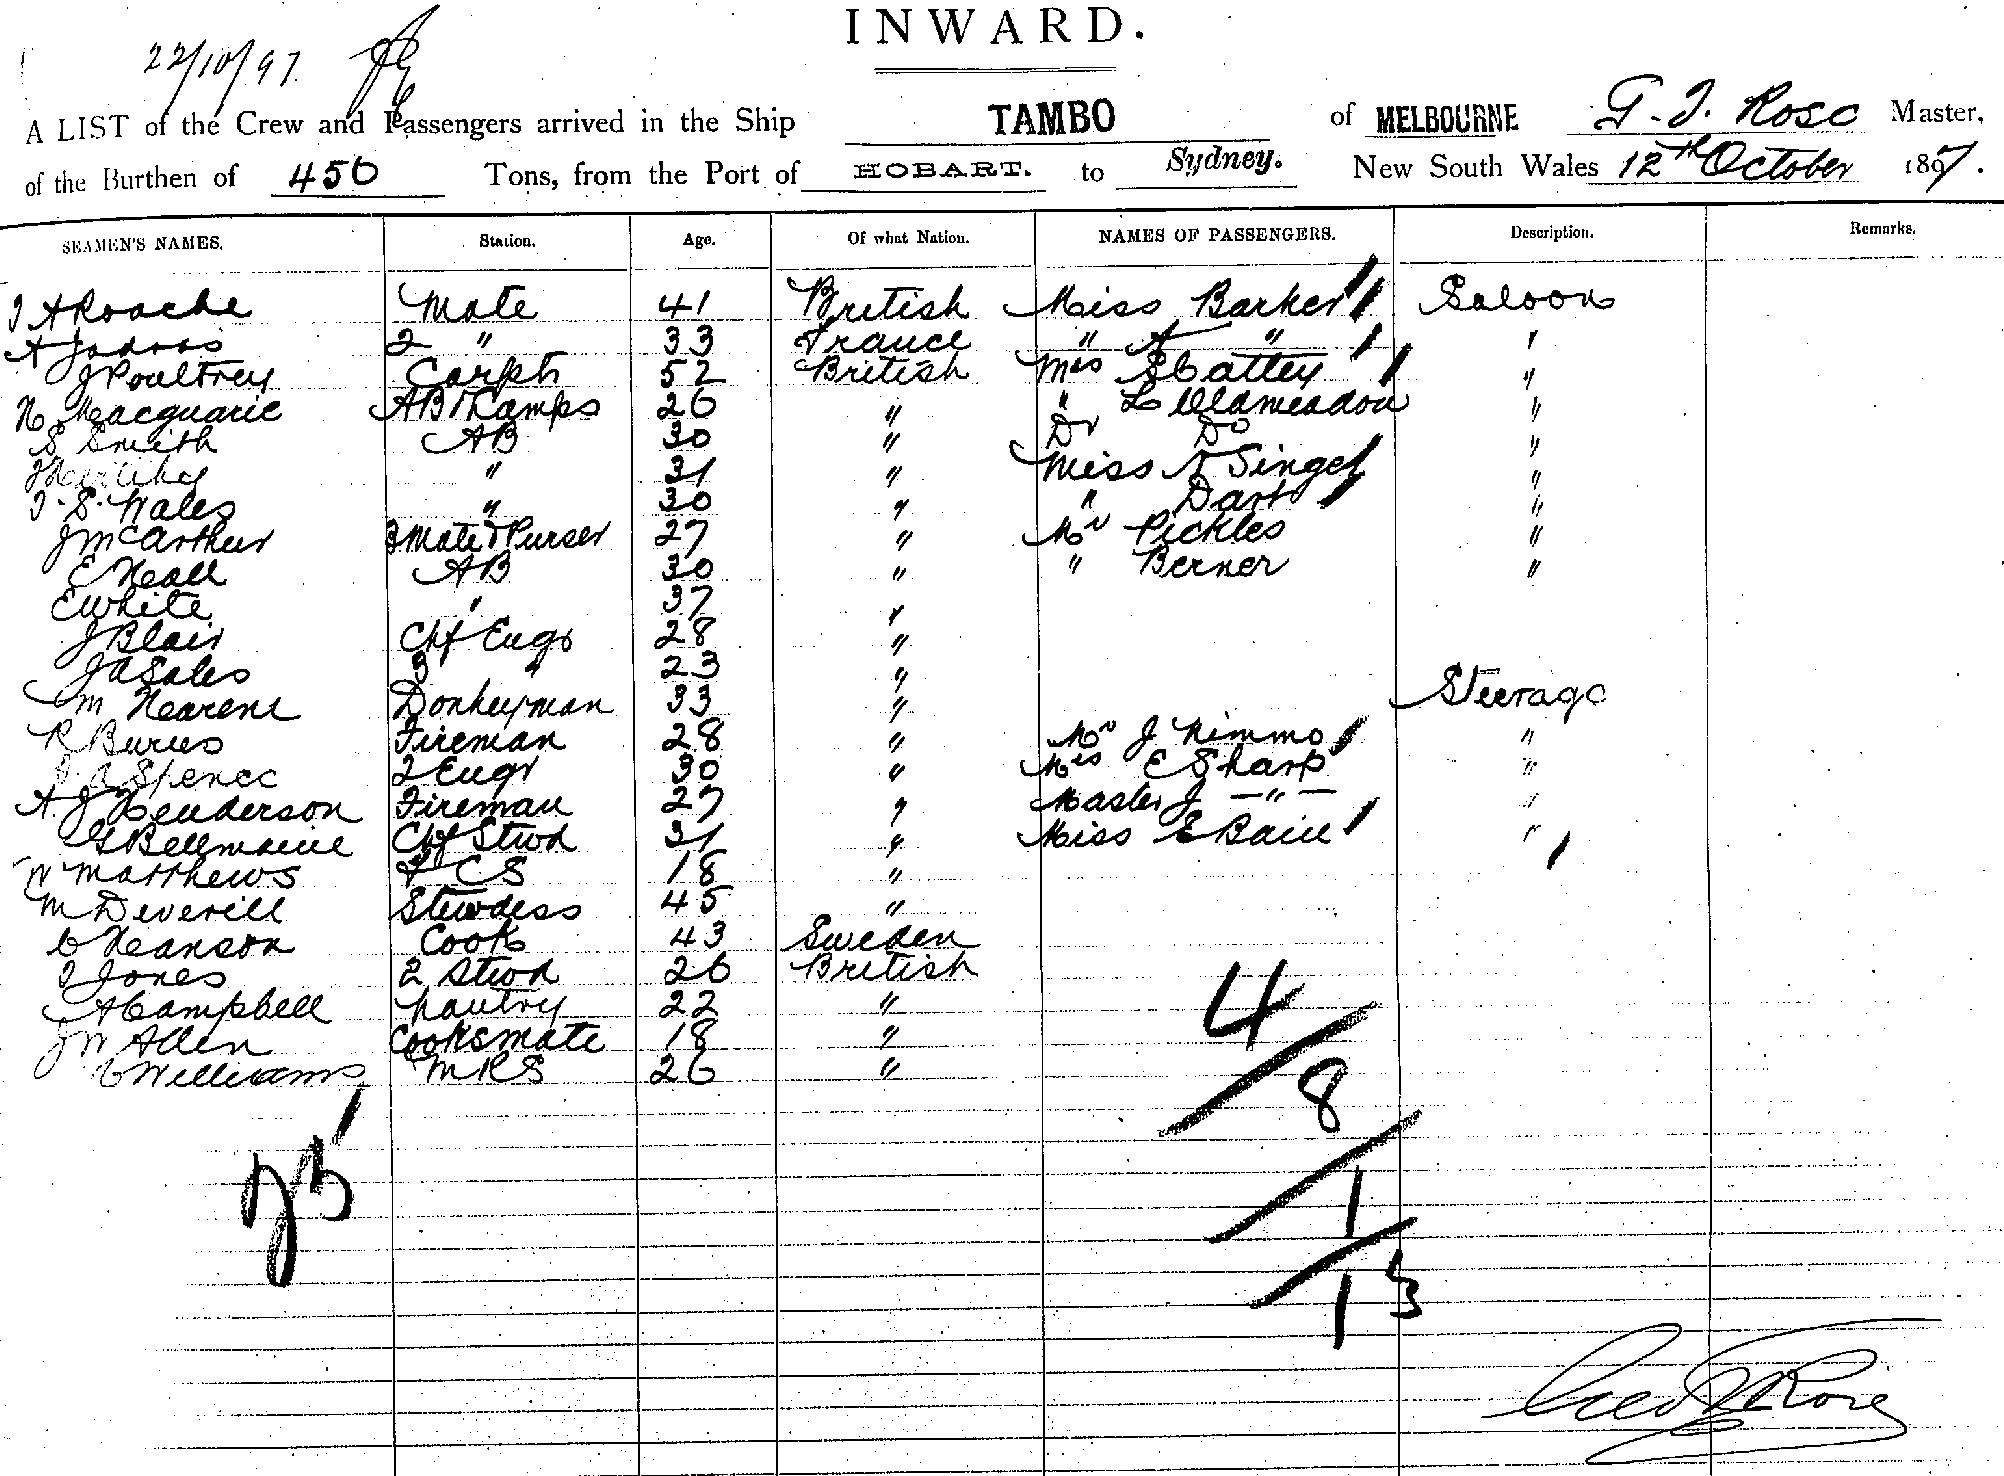 INWARD.
22/10/97
A LIST of the Crew and Passengers arrived in the Ship TAMBO of MELBOURNE G. J. Rose Master,
of the Burthen of 450 Tons, from the Port of HOBART. to Sydney. New South Wales 12th October 1897.
SEAMEN'S NAMES. Station. Age. Of what Nation. NAMES OF PASSENGERS. Description. Remarks.
Roache Mate 41 British Miss Barker Saloon
A 2 " 33 France " A " "
J Poultrey Carptr 52 British Mrs Slattery "
Macquarie AB & Lamps 26 " " "
S Smith AB 30 " Dr Do "
" 31 " Miss Singer "
Wales " 30 " " Dart "
J McArthur 3 Mate & Purser 27 " Mr Pickles "
E Neall AB 30 " " Berner "
E White " 37 "
J Blair Chf Engr 28 "
J A Sales 3 " 23 "
M Donkeyman 33 " Steerage
R Fireman 28 " Mr J Nimmo "
Spence 2 Engr 30 " Mrs E Sharp "
A. J Henderson Fireman 27 " Master J — " — "
Chf Stwd 31 " Miss E Bain "
W Matthews F CS 18 "
M Deverill Stewdess 45 "
Heanson Cook 43 Sweden
Jones 2 Stwd 26 British
A Campbell Pantry 22 "
J W Allen Cooksmate 18 "
C Williams MRS 26 "
4
8
25
1
13
Geo J Rose